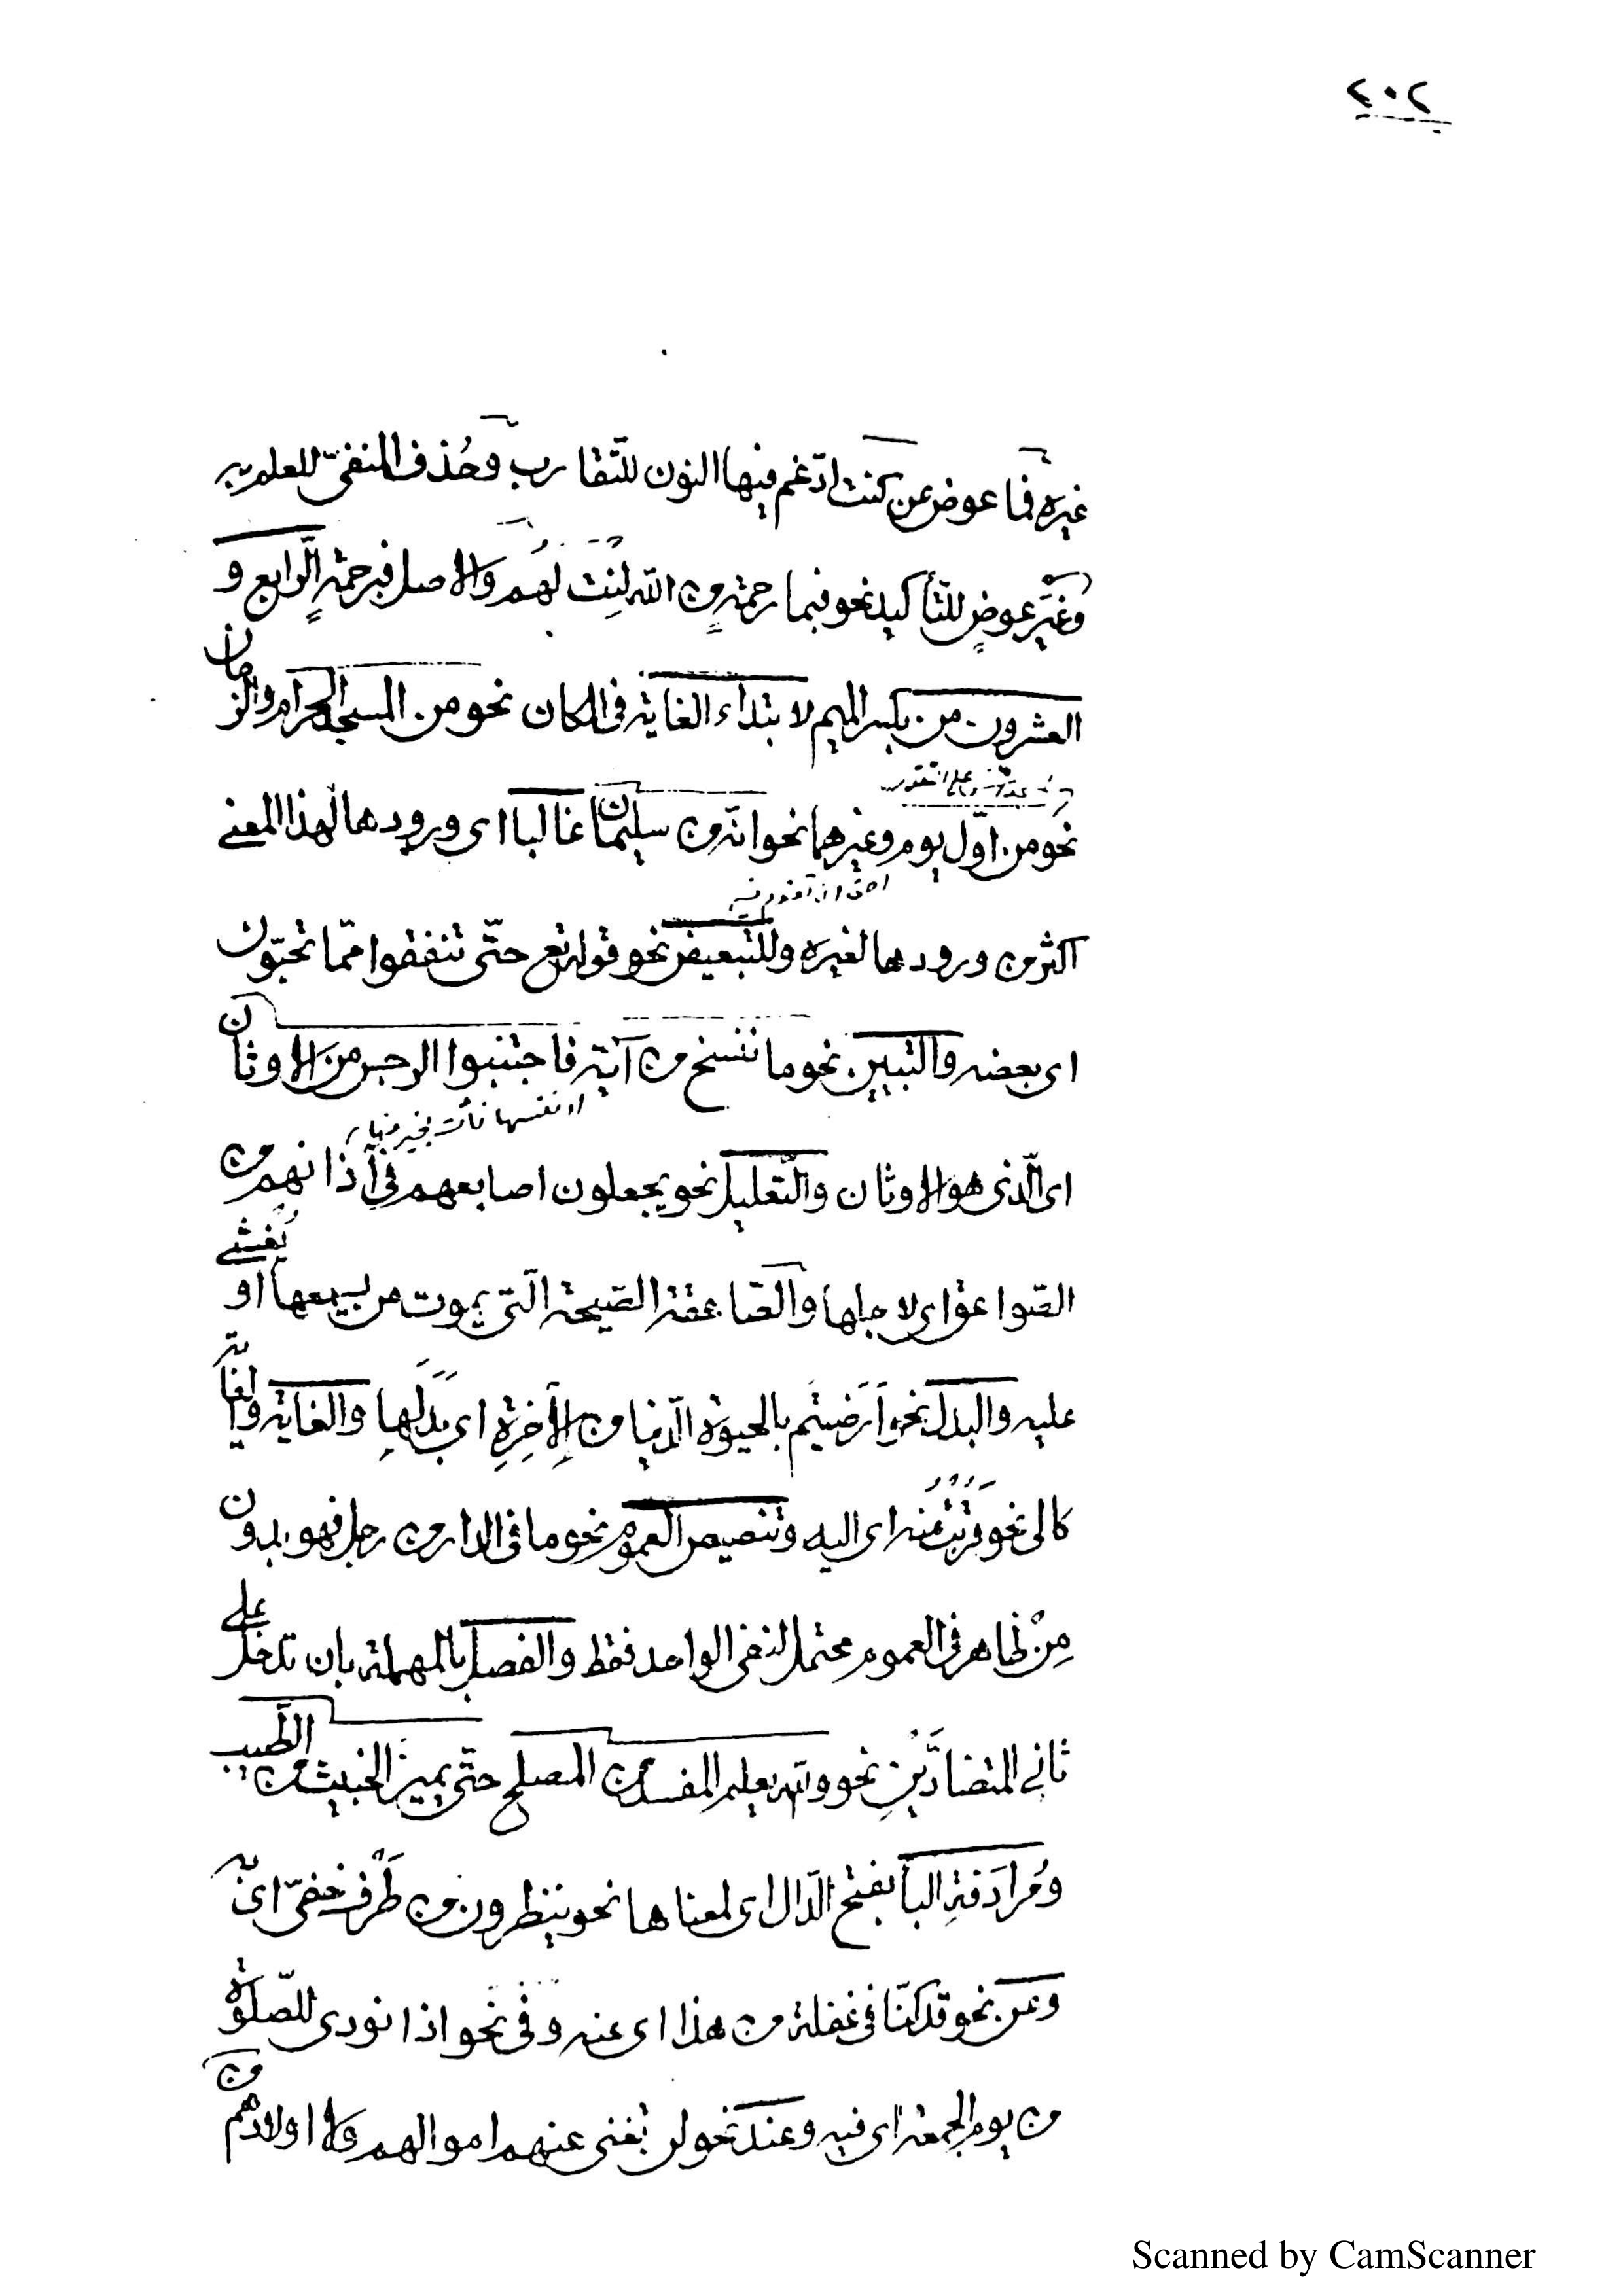 ٢٠٢
غيره فما عوض عن كنت ادغم فيها النون للتّقارب وحُذف المنفىّ للعلم به
وغَيْر عوضٍ للتأكيد نحو فبما رحمةٍ من اللّه لِنْتَ لَهُم والاصل فبرحمةٍ الرّابع و
العشرون من بكسر الميم لابتداء الغاية فى المكان نحو من المسجد الحرام والزمان
نحو من اوّل يوم وغيرهما نحو انّه من سليمان غالبا اى ورودها لهذا المعنى
اكثر من ورودها لغيره وللتبعيض نحو قوله تع حتّى تنفقوا ممّا تحبّون
اى بعضه والتبيين نحو ما ننسخ من آية فاجتنبوا الرجس من الاوثان
او ننسها نأت بخير منها
اى الّذى هو الاوثان والتّعليل نحو يجعلون اصابعهم فى آذانهم من
الصّواعق اى لاجلها والصّاعقة الصّيحة الّتى يموت من يسمعها او يُغْشى
عليه والبدل نحو اَرَضيتم بالحيوة الدّنيا من الآخِرةِ اى بَدَلَها والغاية وفاقا
كالى نحو قَرُبْتُ مِنه اى اليه وتنصيص العموم نحو ما فى الدار من رجل فهو بدون
مِنْ ظاهر فى العموم محتمل لنفى الواحد فقط والفصل بالمهملة بان تدخل على
ثانى المتضادَّيْنِ نحو واللّه يعلم المفسد من المصلح حتّى يميز الخبيث من الطّيب
ومُرادَفةِ البأ بفتح الدّال اى لمعناها نحو ينظرون من طَرْف خفىّ اى به
وعن نحو قد كنّا فى غفلة من هذا اى عنه وفى نحو اذا نودى للصّلوة
من يوم الجمعة اى فيه وعند نحو لن تغنى عنهم اموالهم ولا اولادهم من
Scanned by CamScanner